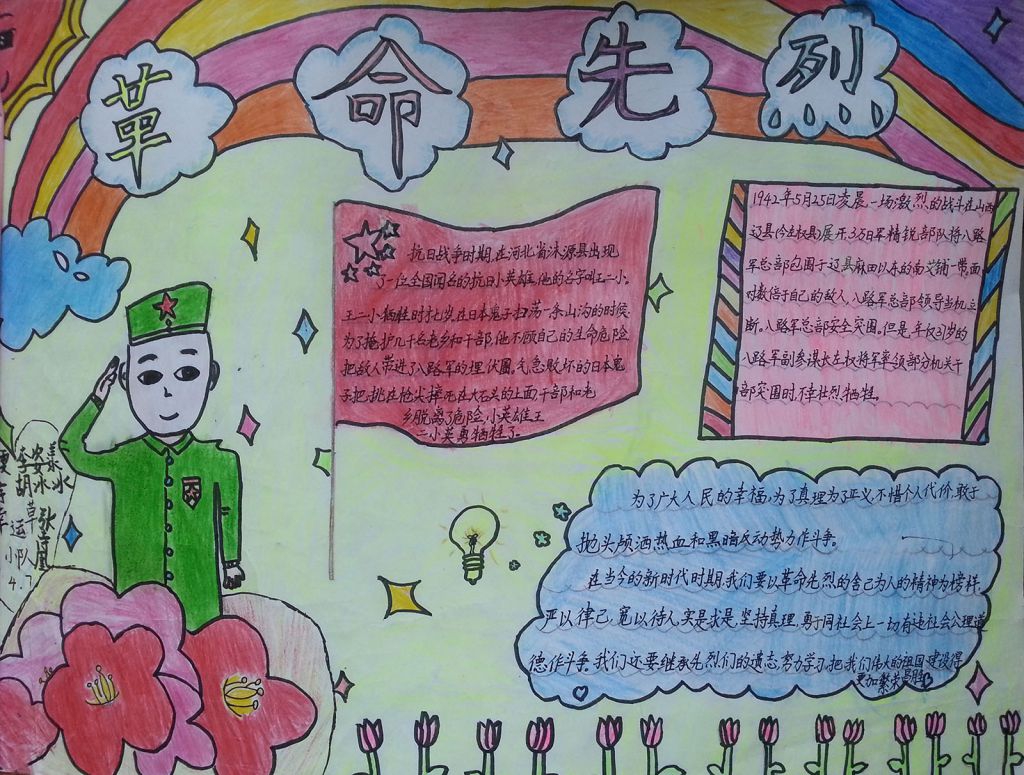 革命先烈
抗日战争时期,在河北省涞源县出现
了一位全国闻名的抗日小英雄,他的名字叫王二小。
王二小牺牲时才七岁,在日本鬼子扫荡一条山沟的时候,
为了掩护几十名老乡和干部,他不顾自己的生命危险
把敌人带进了八路军的埋伏圈,气急败坏的日本鬼
子把挑在枪尖摔死在大石头的上面干部和老
乡脱离了危险,小英雄王
二小英勇牺牲了。
1942年5月25日凌晨,一场激烈的战斗在山西
辽县(今左权县)展开,3万日军精锐部队将八路
军总部包围于辽县麻田以东的南艾铺一带,面
对数倍于自己的敌人,八路军总部领导当机立
断。八路军总部安全突围。但是,年仅31岁的
八路军副参谋长左权将军率领部分机关干
部突围时不幸壮烈牺牲。
为了广大人民的幸福,为了真理为了正义,不惜个人代价,敢于
抛头颅洒热血和黑暗反动势力作斗争。
在当今的新时代时期,我们要以革命先烈的舍己为人的精神为榜样,
严以律己,宽以待人,实是求是,坚持真理,勇于同社会上一切有违社会公理道
德作斗争,我们还要继承先烈们的遗志,努力学习,把我们伟大的祖国建设得
更加繁荣昌盛
小队
4.7